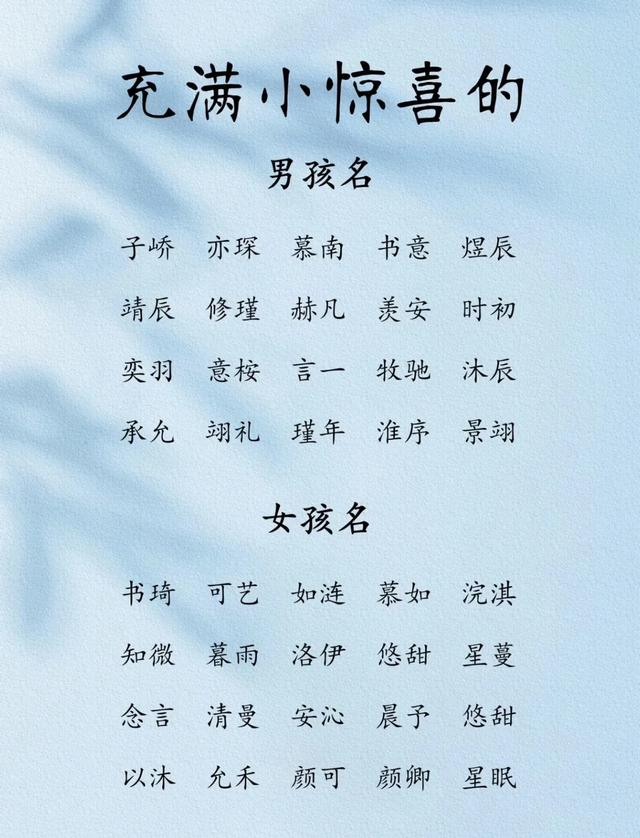 充满小惊喜的
男孩名
子峤 亦琛 慕南 书意 煜辰
靖辰 修瑾 赫凡 羡安 时初
奕羽 意桉 言一 牧驰 沐辰
承允 翊礼 瑾年 淮序 景翊
女孩名
书琦 可艺 如涟 慕如 浣淇
知微 暮雨 洛伊 悠甜 星蔓
念言 清曼 安沁 晨予 悠甜
以沐 允禾 颜可 颜卿 星眠